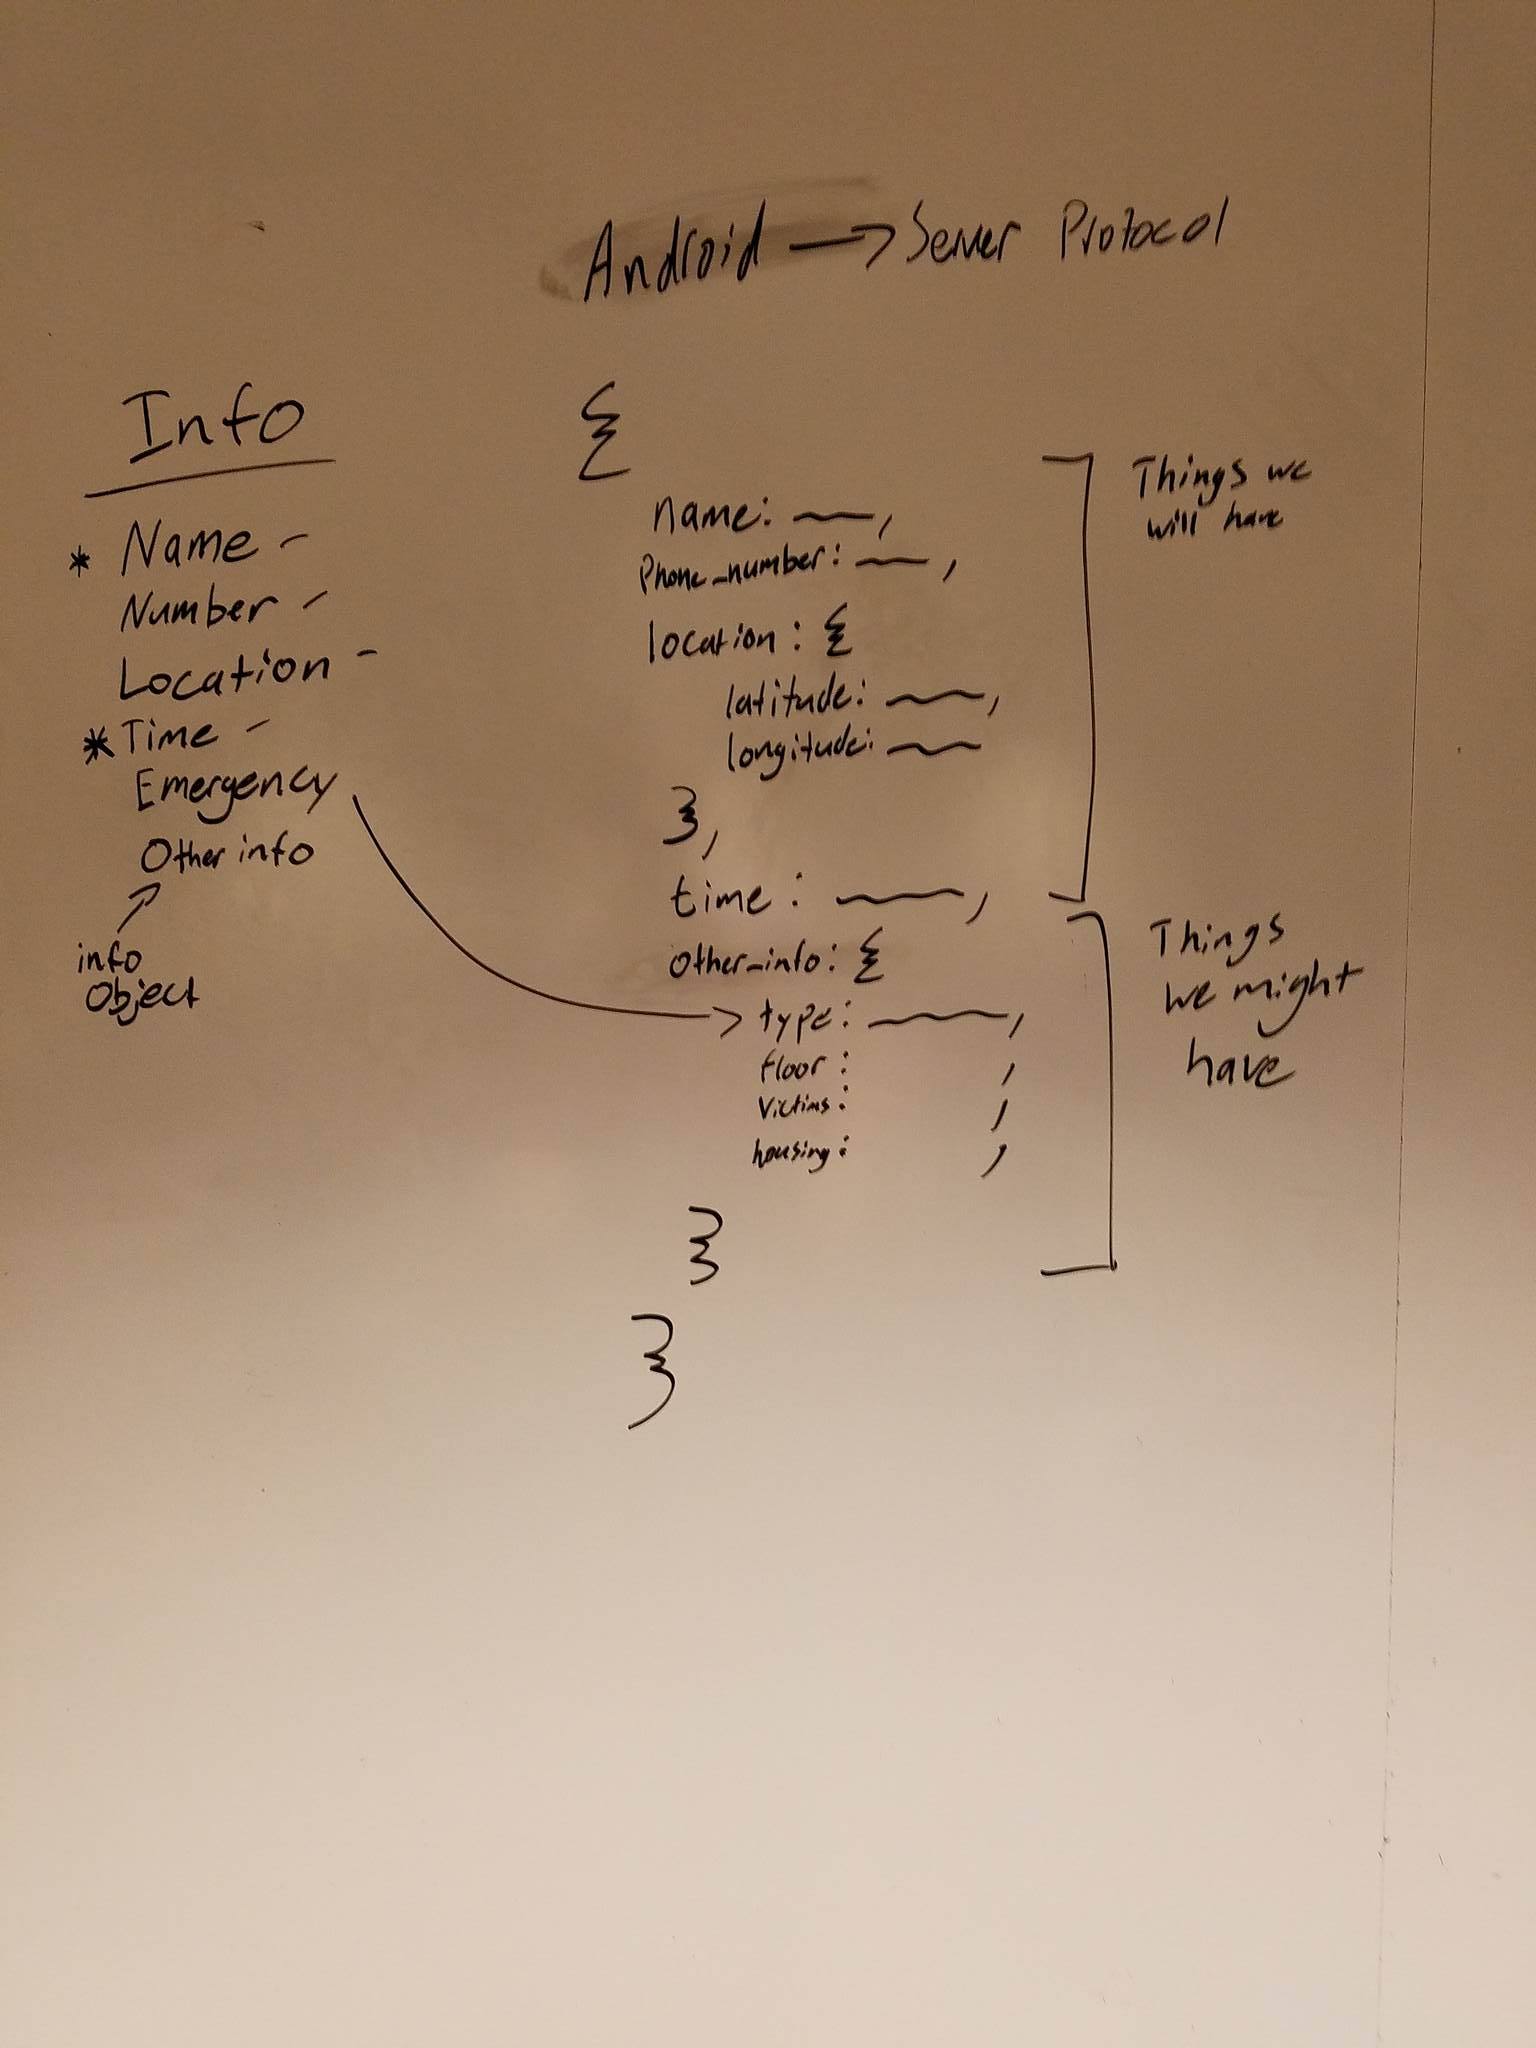 Android → Server Protocol
Info
* Name -
Number -
Location -
* Time -
Emergency
Other info
info
Object
{
name: ___,
Phone_number: ___,
location: {
latitude: ___,
longitude: ___
},
time: ___,
Other_info: {
type: ___,
floor: ,
Victims: ,
housing: ,
}
}
Things we
will have
Things
we might
have